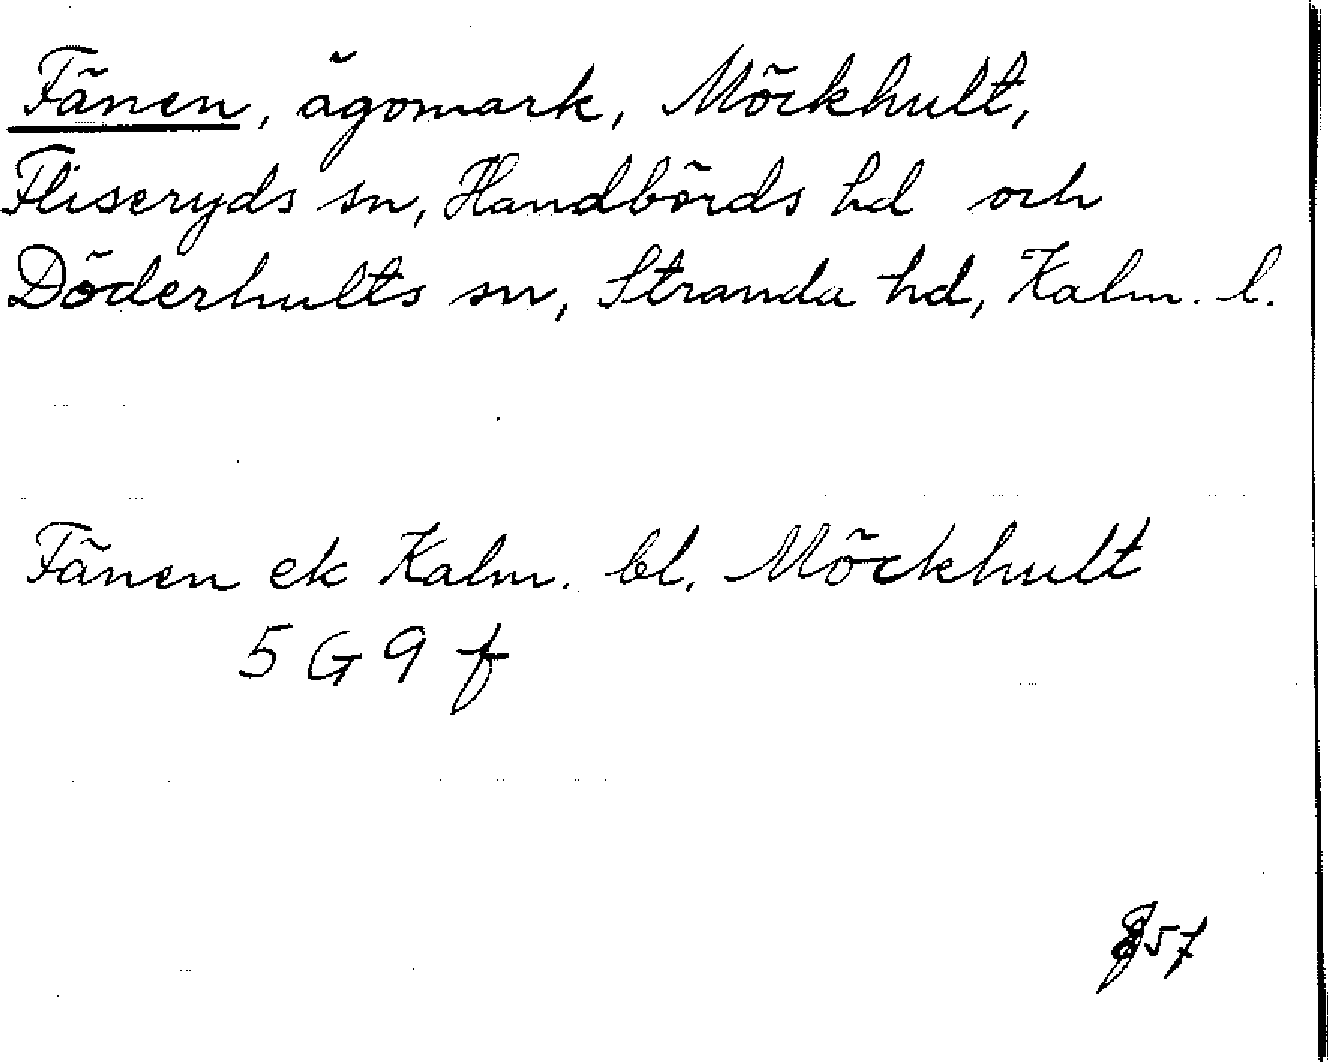 Fänen, ägomark, Möckhult,
Fliseryds sn, Handbörds hd och
Döderhults sn, Stranda hd, Kalm. l.
Fänen ek Kalm. bl. Möckhult
5 G 9 f
57